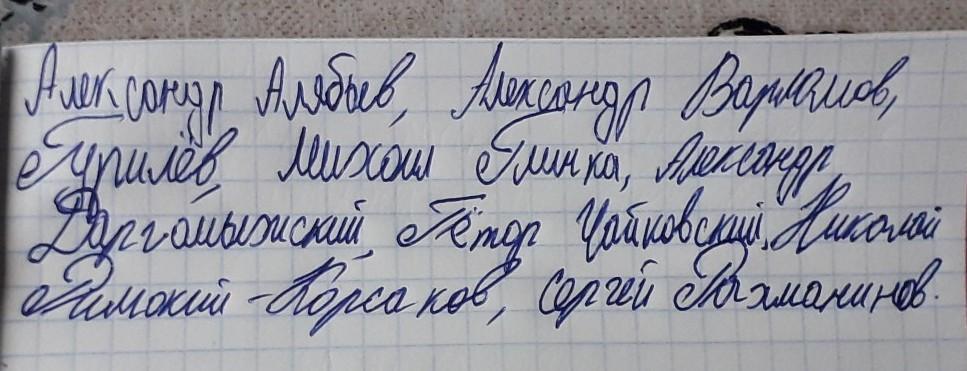 Александр Алябьев, Александр Варламов,
Гурилёв, Михаил Глинка, Александр
Даргомыжский, Пётр Чайковский, Николай
Римский-Корсаков, Сергей Рахманинов.